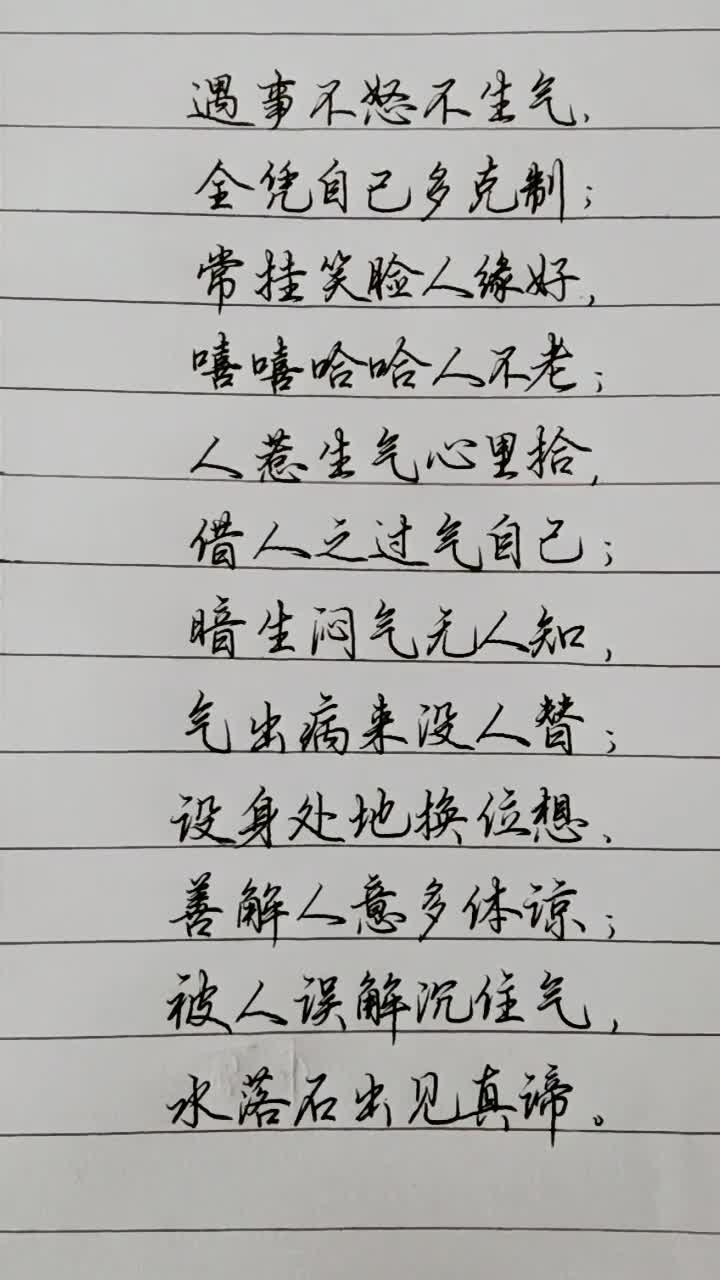 遇事不怒不生气，
全凭自己多克制；
常挂笑脸人缘好，
嘻嘻哈哈人不老；
人惹生气心里拾，
借人之过气自己；
暗生闷气无人知，
气出病来没人替；
设身处地换位想、
善解人意多体谅；
被人误解沉住气，
水落石出见真谛。